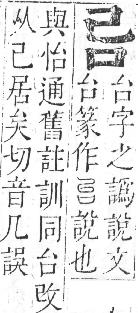 台字之譌說文
台篆作說也
與怡通舊註訓同台改
从己居矣切音几誤